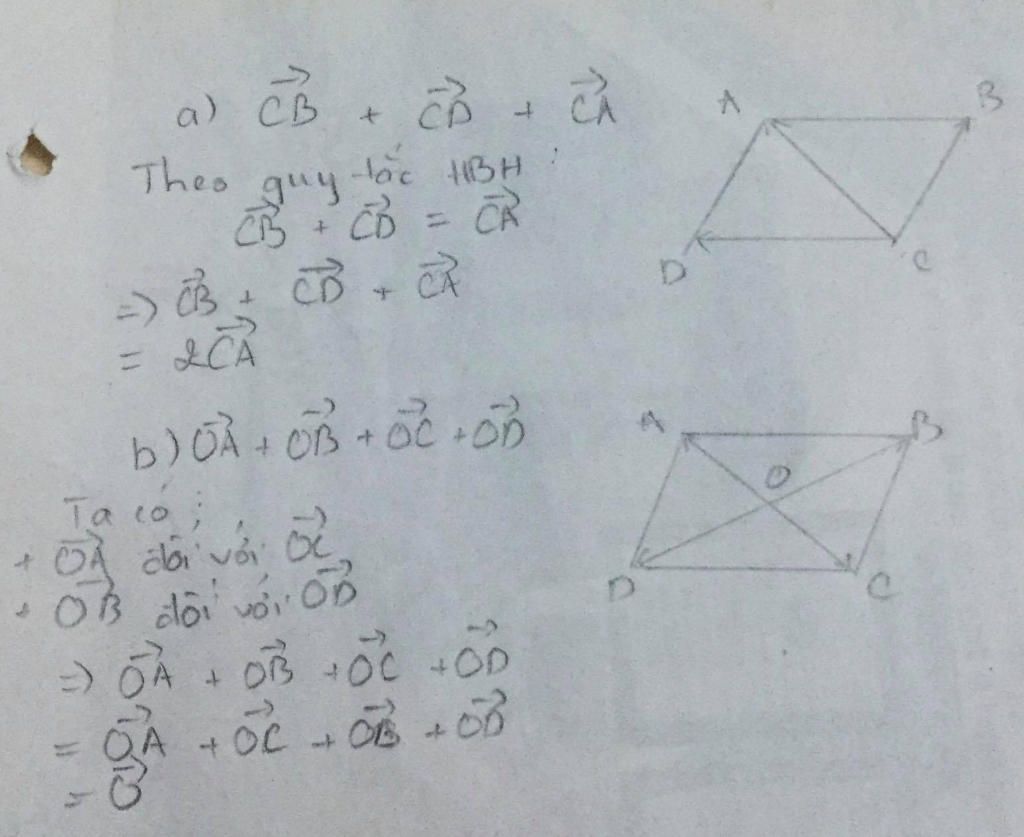 a) $\overrightarrow{CB}$ + $\overrightarrow{CD}$ + $\overrightarrow{CA}$
Theo quy tắc HBH :
$\overrightarrow{CB}$ + $\overrightarrow{CD}$ = $\overrightarrow{CA}$
=> $\overrightarrow{CB}$ + $\overrightarrow{CD}$ + $\overrightarrow{CA}$
= 2$\overrightarrow{CA}$
A B
D C
b) $\overrightarrow{OA}$ + $\overrightarrow{OB}$ + $\overrightarrow{OC}$ + $\overrightarrow{OD}$
Ta có :
+ $\overrightarrow{OA}$ đối với $\overrightarrow{OC}$
+ $\overrightarrow{OB}$ đối với $\overrightarrow{OD}$
=> $\overrightarrow{OA}$ + $\overrightarrow{OB}$ + $\overrightarrow{OC}$ + $\overrightarrow{OD}$
= $\overrightarrow{OA}$ + $\overrightarrow{OC}$ + $\overrightarrow{OB}$ + $\overrightarrow{OD}$
= $\overrightarrow{O}$
A B
O
D C